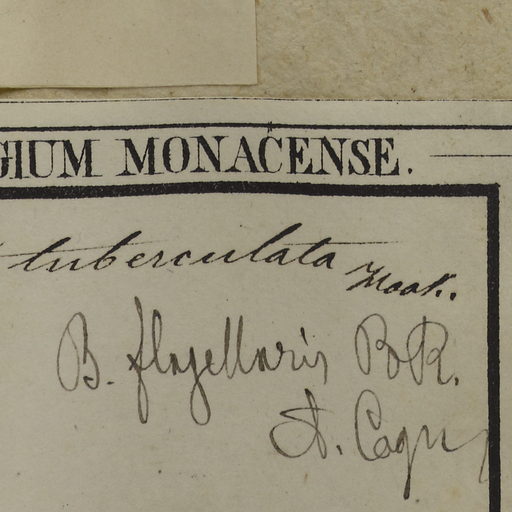 GIUM MONACENSE.
tuberculata Hook.
B. flagellaris B&R.
A. Cogn